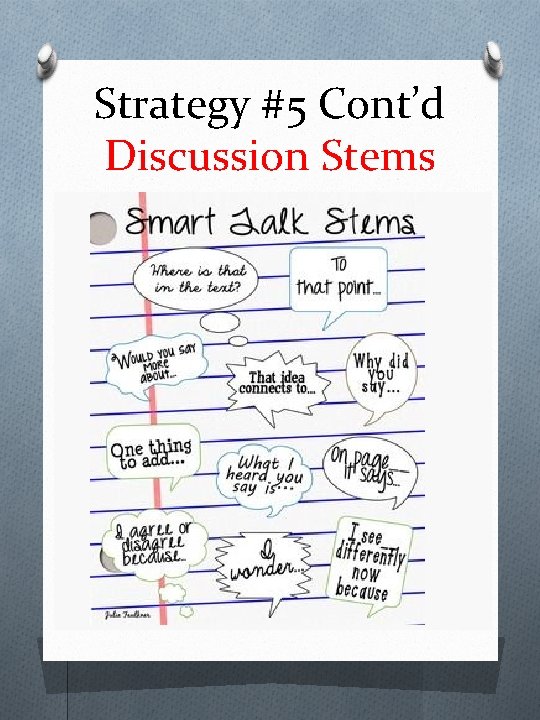 Strategy #5 Cont’d
Discussion Stems
Smart Talk Stems
Where is that
in the text?
To
that point...
Would you say
more
about...
That idea
connects to...
Why did
you
say...
One thing
to add...
What I
heard you
say is...
On page__
it says...
I agree or
disagree
because...
I
wonder...
I see
differently
now
because
Julie Faulkner